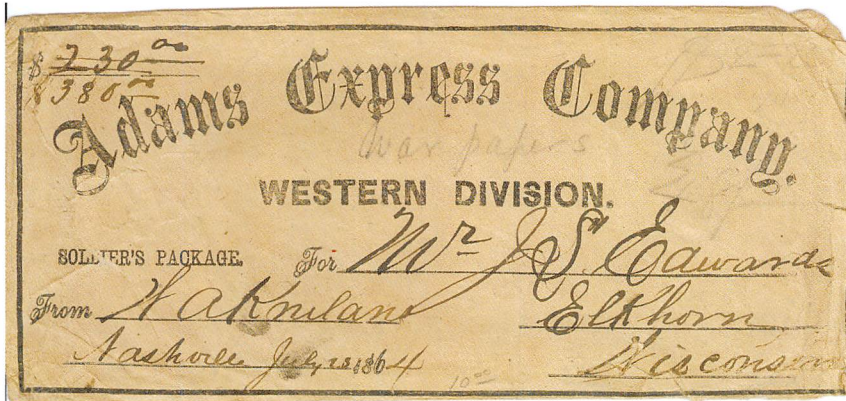 $ 230 00
$ 380 00
Adams Express Company.
war papers
WESTERN DIVISION.
SOLDIER'S PACKAGE. For Mr J. S. Edwards
From Elkhorn
Nashville July 1864 Wisconsin
10 00